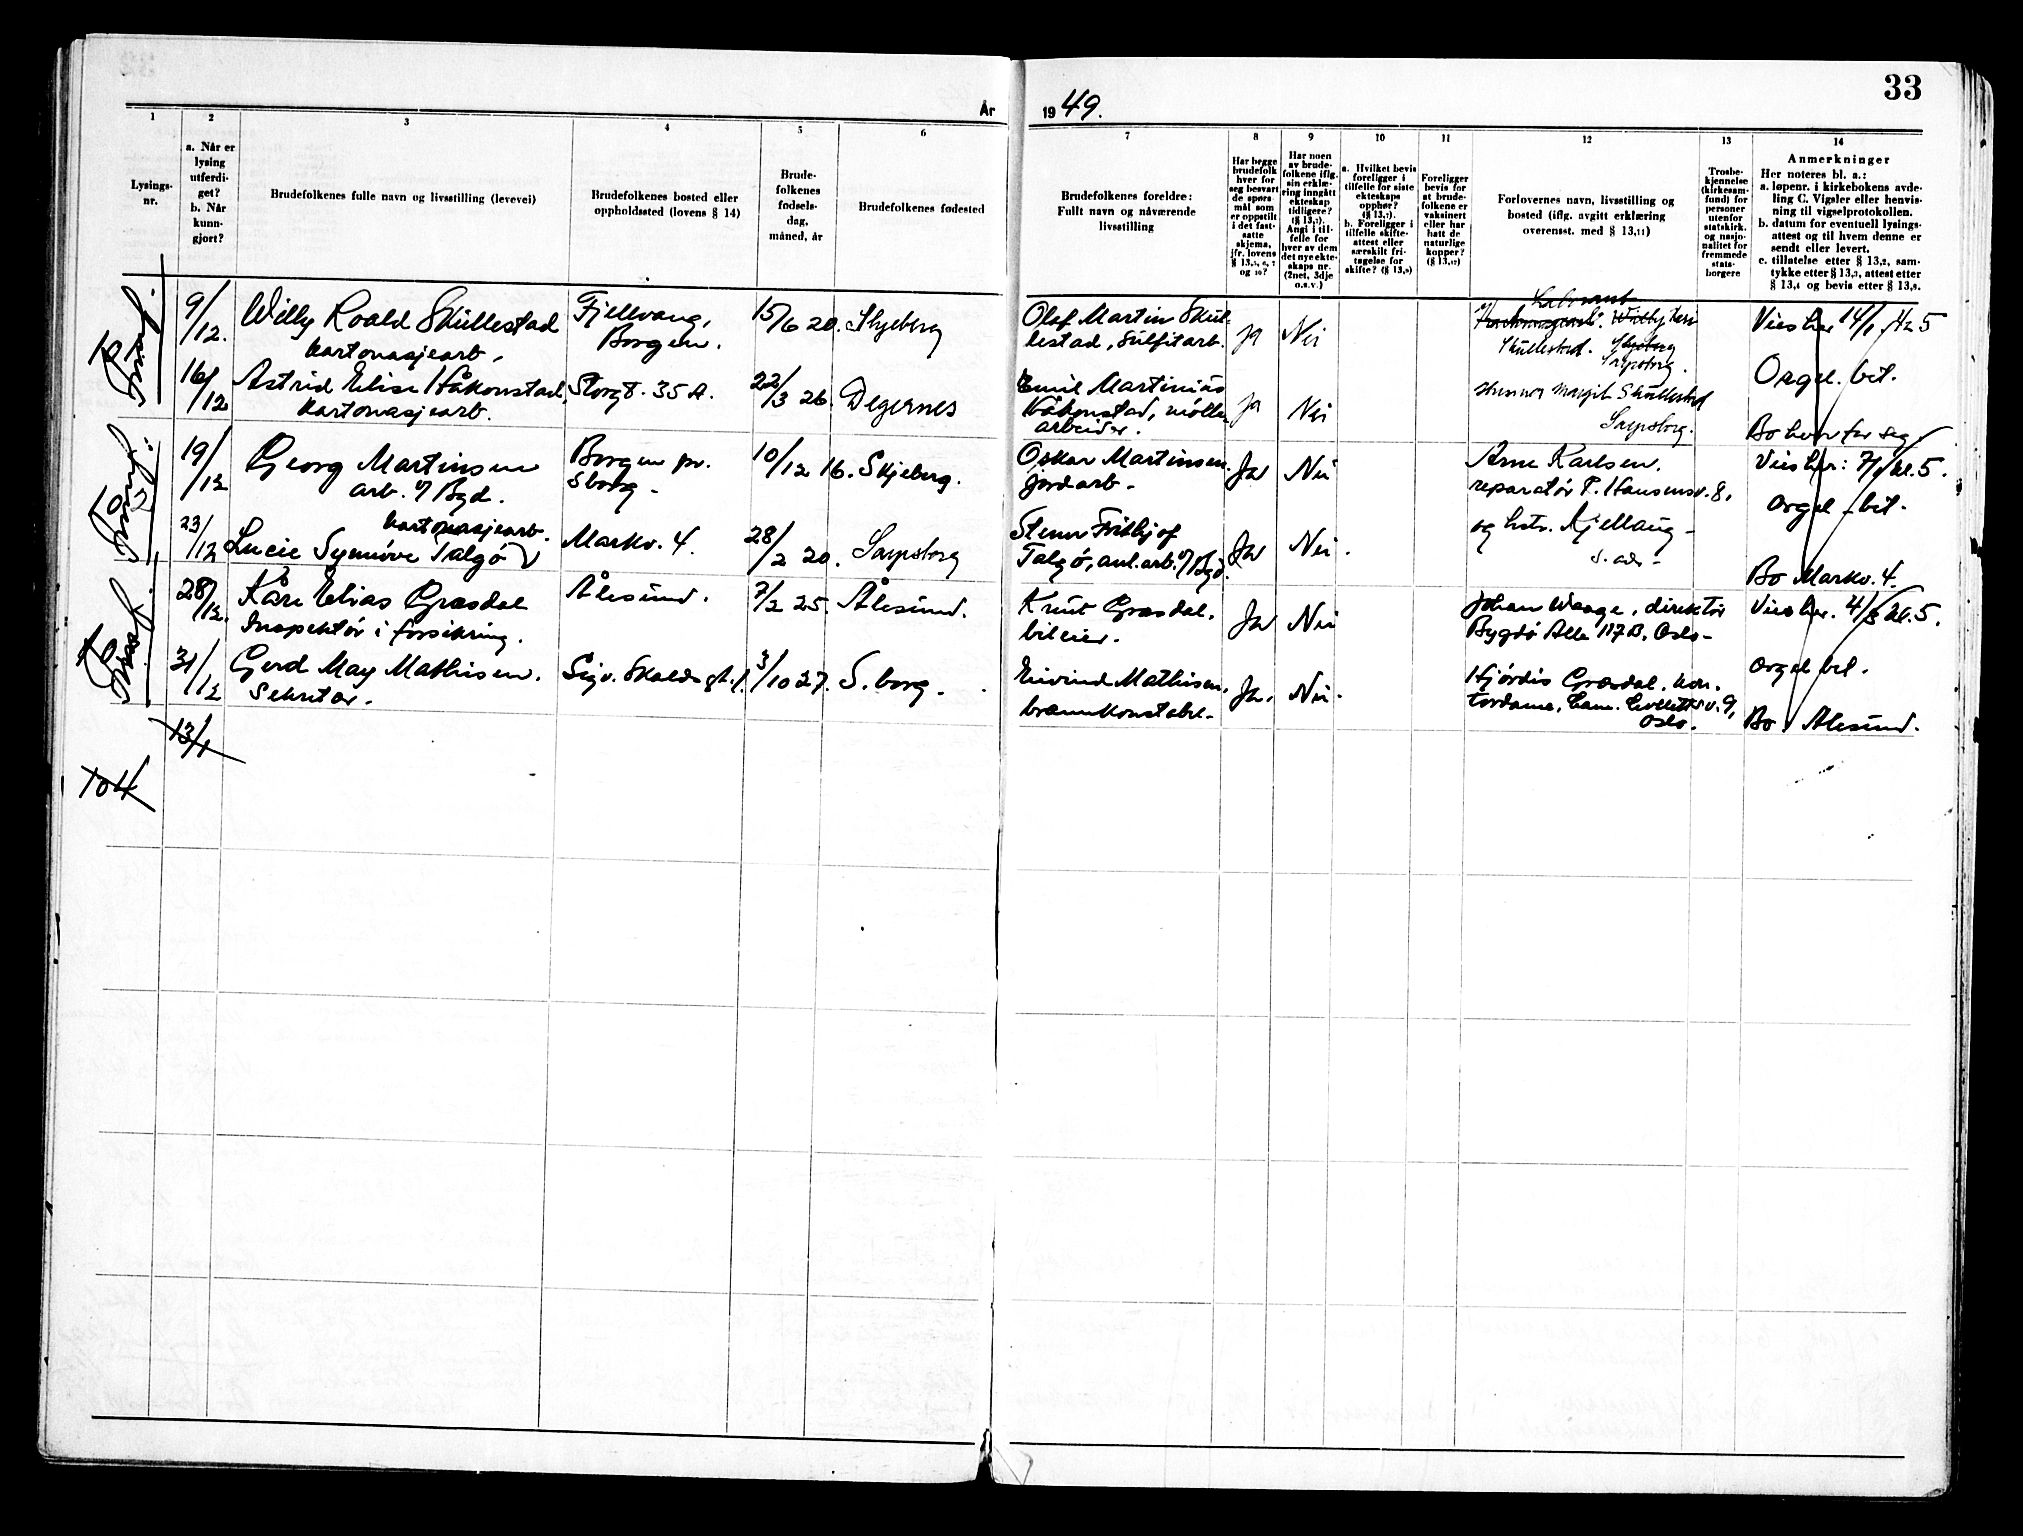 33
År
19 49.
1
2
3
4
5
6
7
8
9
10
11
12
13
14
Lysings-
nr.
a. Når er
lysing
utferdi-
get?
b. Når
kunn-
gjort?
Brudefolkenes fulle navn og livsstilling (levevei)
Brudefolkenes bosted eller
oppholdssted (lovens § 14)
Brude-
folkenes
fødsels-
dag,
måned, år
Brudefolkenes fødested
Brudefolkenes foreldre:
Fullt navn og nåværende
livsstilling
Har begge
brudefolk
hver for
seg besvart
de spørs-
mål som
er oppstilt
i det fast-
satte
skjema,
jfr. lovens
§ 13,5, 6, 7
og 10?
Har noen
av brude-
folkene iflg.
sin erklæ-
ring inngått
ekteskap
tidligere?
(§ 13,7).
Angi i til-
felle for
hver av dem
det nye ekte-
skaps nr.
(2net, 3dje
o.s.v.)
a. Hvilket bevis
foreligger i
tilfelle for siste
ekteskaps
opphør?
(§ 13,7).
b. Foreligger i
tilfelle skifte-
attest eller
særskilt fri-
tagelse for
skifte? (§ 13,9)
Foreligger
bevis for
at brude-
folkene er
vaksinert
eller har
hatt de
naturlige
kopper?
(§ 13,12)
Forlovernes navn, livsstilling og
bosted (iflg. avgitt erklæring
overensst. med § 13,11)
Trosbe-
kjennelse
(kirkesam-
fund) for
personer
utenfor
statskirk.
og nasjo-
nalitet for
fremmede
stats-
borgere
Anmerkninger
Her noteres bl. a.:
a. løpenr. i kirkebokens avde-
ling C. Vigsler eller henvis-
ning til vigselprotokollen.
b. datum for eventuell lysings-
attest og til hvem denne er
sendt eller levert.
c. tillatelse etter § 13,2, sam-
tykke etter § 13,3, attest etter
§ 13,4 og bevis etter § 13,8.
9/12.
Willy Roald Skullestad
kartonasjearb.
Fjellvang,
Borgen.
15/6 20.
Skjeberg
Olaf Martin Skul-
lestad, Sulfitarb.
Ja
Nei
Skullestad. Skjeberg
Sarpsborg.
Vies her 14/1 kl. 5
Orgel. bet.
16/12
Astrid Elise Håkonstad,
kartonasjearb.
Storgt. 35 A.
22/3 26.
Degernes
Emil Martinius
Håkonstad, mølle-
arbeider.
Ja
Nei
Gunnor Margit Skullestad
Sarpsborg.
Bo hver for seg
19/12
Georg Martinsen
arb. v/ Bgd.
Borgen pr.
Sborg.
10/12 16.
Skjeberg.
Oskar Martinsen
jordarb.
Ja
Nei
Arne Karlsen.
reparatør P. Hansensv. 8,
Vies her: 7/1 kl. 5.
Orgel - bet.
23/12
kartonasjearb.
Lucie Synnøve Talgø
Markv. 4.
28/2 20.
Sarpsborg
Stener Fritbjof
Talgø, anl.arb. v/ Bgd.
Ja
Nei.
og hstr. Kjellaug
s. adr.
Bo Markv. 4.
28/12.
Kåre Elias Græsdal
Inspektør i forsikring.
Ålesund.
7/2 25.
Ålesund.
Knut Græsdal.
bileier.
Ja
Nei
Johan Waage, direktør
Bygdø Alle 117 B, Oslo
Vies her. 4/3 kl. 5.
Orgel bet.
31/12
Gerd May Mathisen.
Sekretær.
Sigv. Skaldsgt. 1.
3/10 27.
S.borg.
Eivind Mathisen,
brannkonstabel.
Ja.
Nei.
Hjördis Græsdal, kon-
tordame, Cam. Collettsv. 9,
Oslo.
Bo Ålesund.
13/1
104